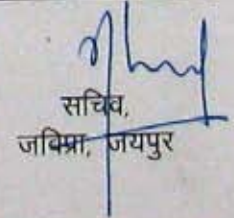 सचिव,
जविप्रा, जयपुर